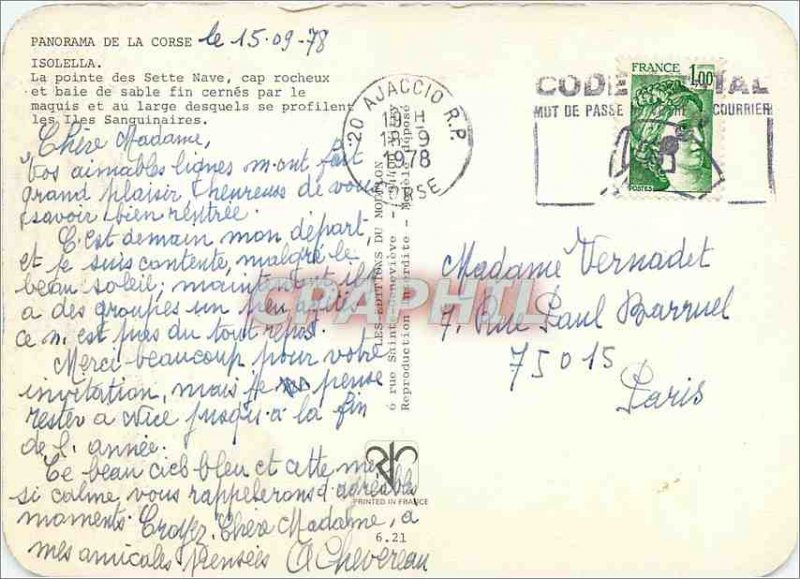 PANORAMA DE LA CORSE le 15.09-78
ISOLELLA.
La pointe des Sette Nave, cap rocheux
et baie de sable fin cernés par le
maquis et au large desquels se profilent
les Iles Sanguinaires.
Chère Madame,
Vos aimables lignes m'ont fait
grand plaisir & heureuse de vous
savoir bien rentrée.
C'est demain mon départ,
et je suis contente, malgré le
beau soleil; maintenant il y
a des groupes un peu agités
ce n'est pas du tout repos.
Merci beaucoup pour votre
invitation, mais je pense
rester à Nice jusqu'à la fin
de l'année.
Ce beau ciel bleu et cette mer
si calme vous rappelerons d'agréables
moments. Croyez, Chère Madame, à
mes amicales pensées A Chevereau
20 AJACCIO R.P.
19 H
1978
CORSE
CODE POSTAL
MOT DE PASSE DE VOTRE COURRIER
FRANCE 1,00
POSTES
Madame Vernadet
7, Rue Paul Barruel
75015
Paris
LES EDITIONS DU MOUFLON
6 rue Sainte Geneviève
Reproduction interdite - Modèle déposé
PRINTED IN FRANCE
6.21
CPAPHIL